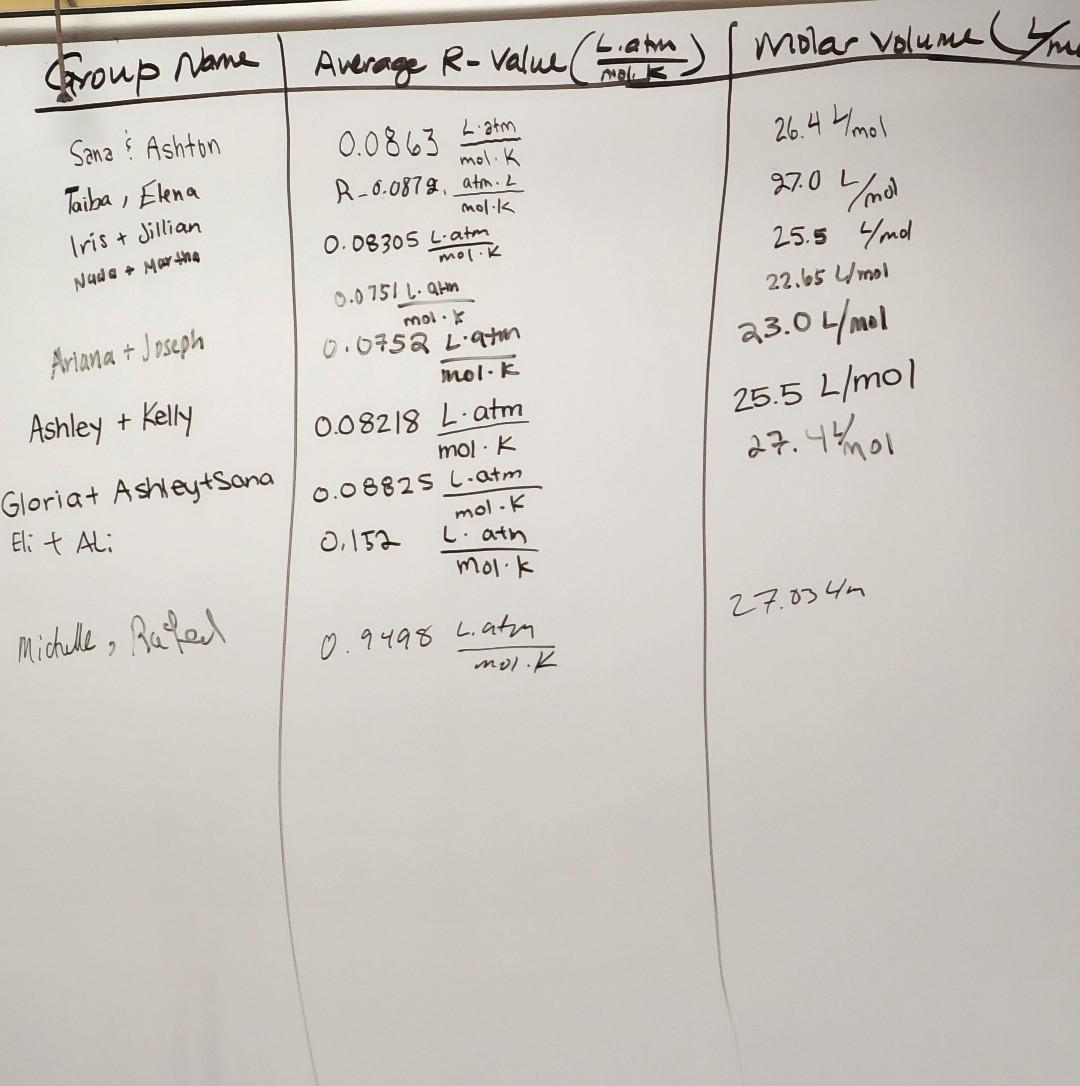 Group Name Average R-Value (L·atm/mol·K) Molar Volume (L/mo
Sana & Ashton 0.0863 L·atm/mol·K 26.4 L/mol
Taiba, Elena R-0.0872. atm·L/mol·K 27.0 L/mol
Iris + Jillian 0.08305 L·atm/mol·K 25.5 L/mol
Nada + Martha 0.0751 L·atm/mol·K 22.65 L/mol
Ariana + Joseph 0.0752 L·atm/mol·K 23.0 L/mol
Ashley + Kelly 0.08218 L·atm/mol·K 25.5 L/mol
Gloria + Ashley + Sana 0.08825 L·atm/mol·K 27.4 L/mol
Eli + ALi 0.152 L·atm/mol·K
Michelle, 0.9498 L.atm/mol.K 27.03 L/m